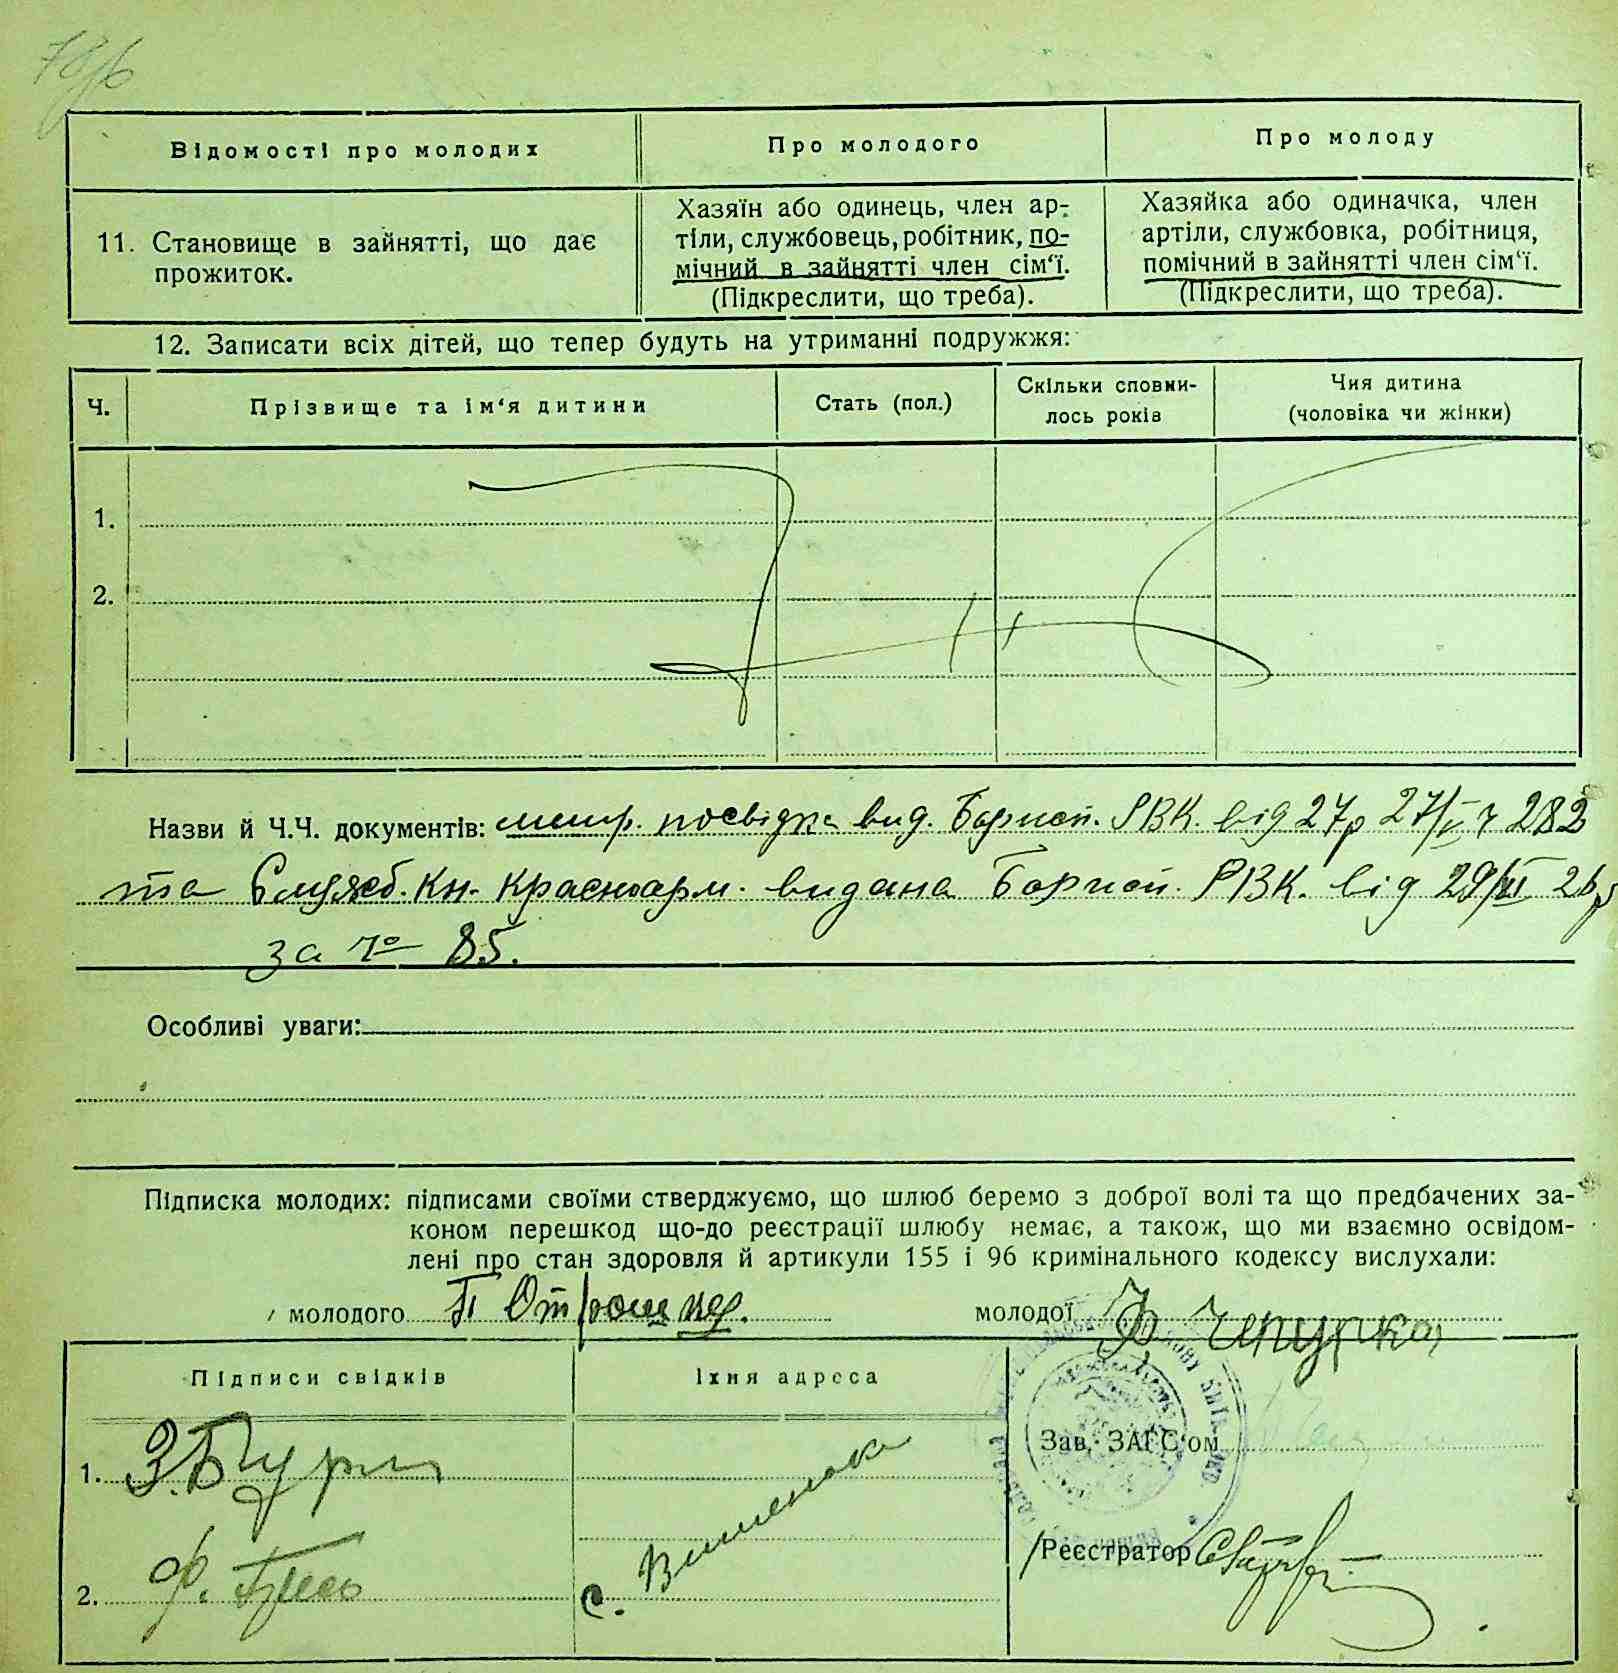 Відомості про молодих
Про молодого
Про молоду
11. Становище в зайнятті, що дає
прожиток.
Хазяїн або одинець, член ар-
тіли, службовець, робітник, по-
мічний в зайнятті член сім'ї.
(Підкреслити, що треба).
Хазяйка або одиначка, член
артіли, службовка, робітниця,
помічний в зайнятті член сім'ї.
(Підкреслити, що треба).
12. Записати всіх дітей, що тепер будуть на утриманні подружжя:
Ч.
Прізвище та ім'я дитини
Стать (пол.)
Скільки сповни-
лось років
Чия дитина
(чоловіка чи жінки)
1.
2.
Назви й Ч.Ч. документів: метр. посвідка вид. Борисп. РВК. від 27р 27/V ч 282
та Служб. кн. красноарм. видана Борисп. РВК. від 29/XI 26р
за № 85.
Особливі уваги:
Підписка молодих: підписами своїми стверджуємо, що шлюб беремо з доброї волі та що предбачених за-
коном перешкод що-до реєстрації шлюбу немає, а також, що ми взаємно освідом-
лені про стан здоровля й артикули 155 і 96 кримінального кодексу вислухали:
молодого
молодої Ф. Чепурка
Підписи свідків
Їхня адреса
1.
Зав. ЗАГС'ом
с. Вишеньки
Реєстратор
2.